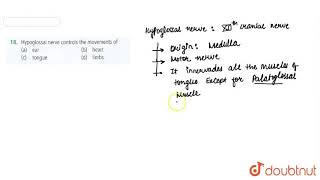 18. Hypoglossal nerve controls the movements of
(a) ear (b) heart
(c) tongue (d) limbs
Hypoglossal nerve : XIIth cranial nerve
→ Origin: Medulla
→ Motor nerve
→ It innervates all the muscles of
tongue Except for Palatoglossal
muscle
doubtnut